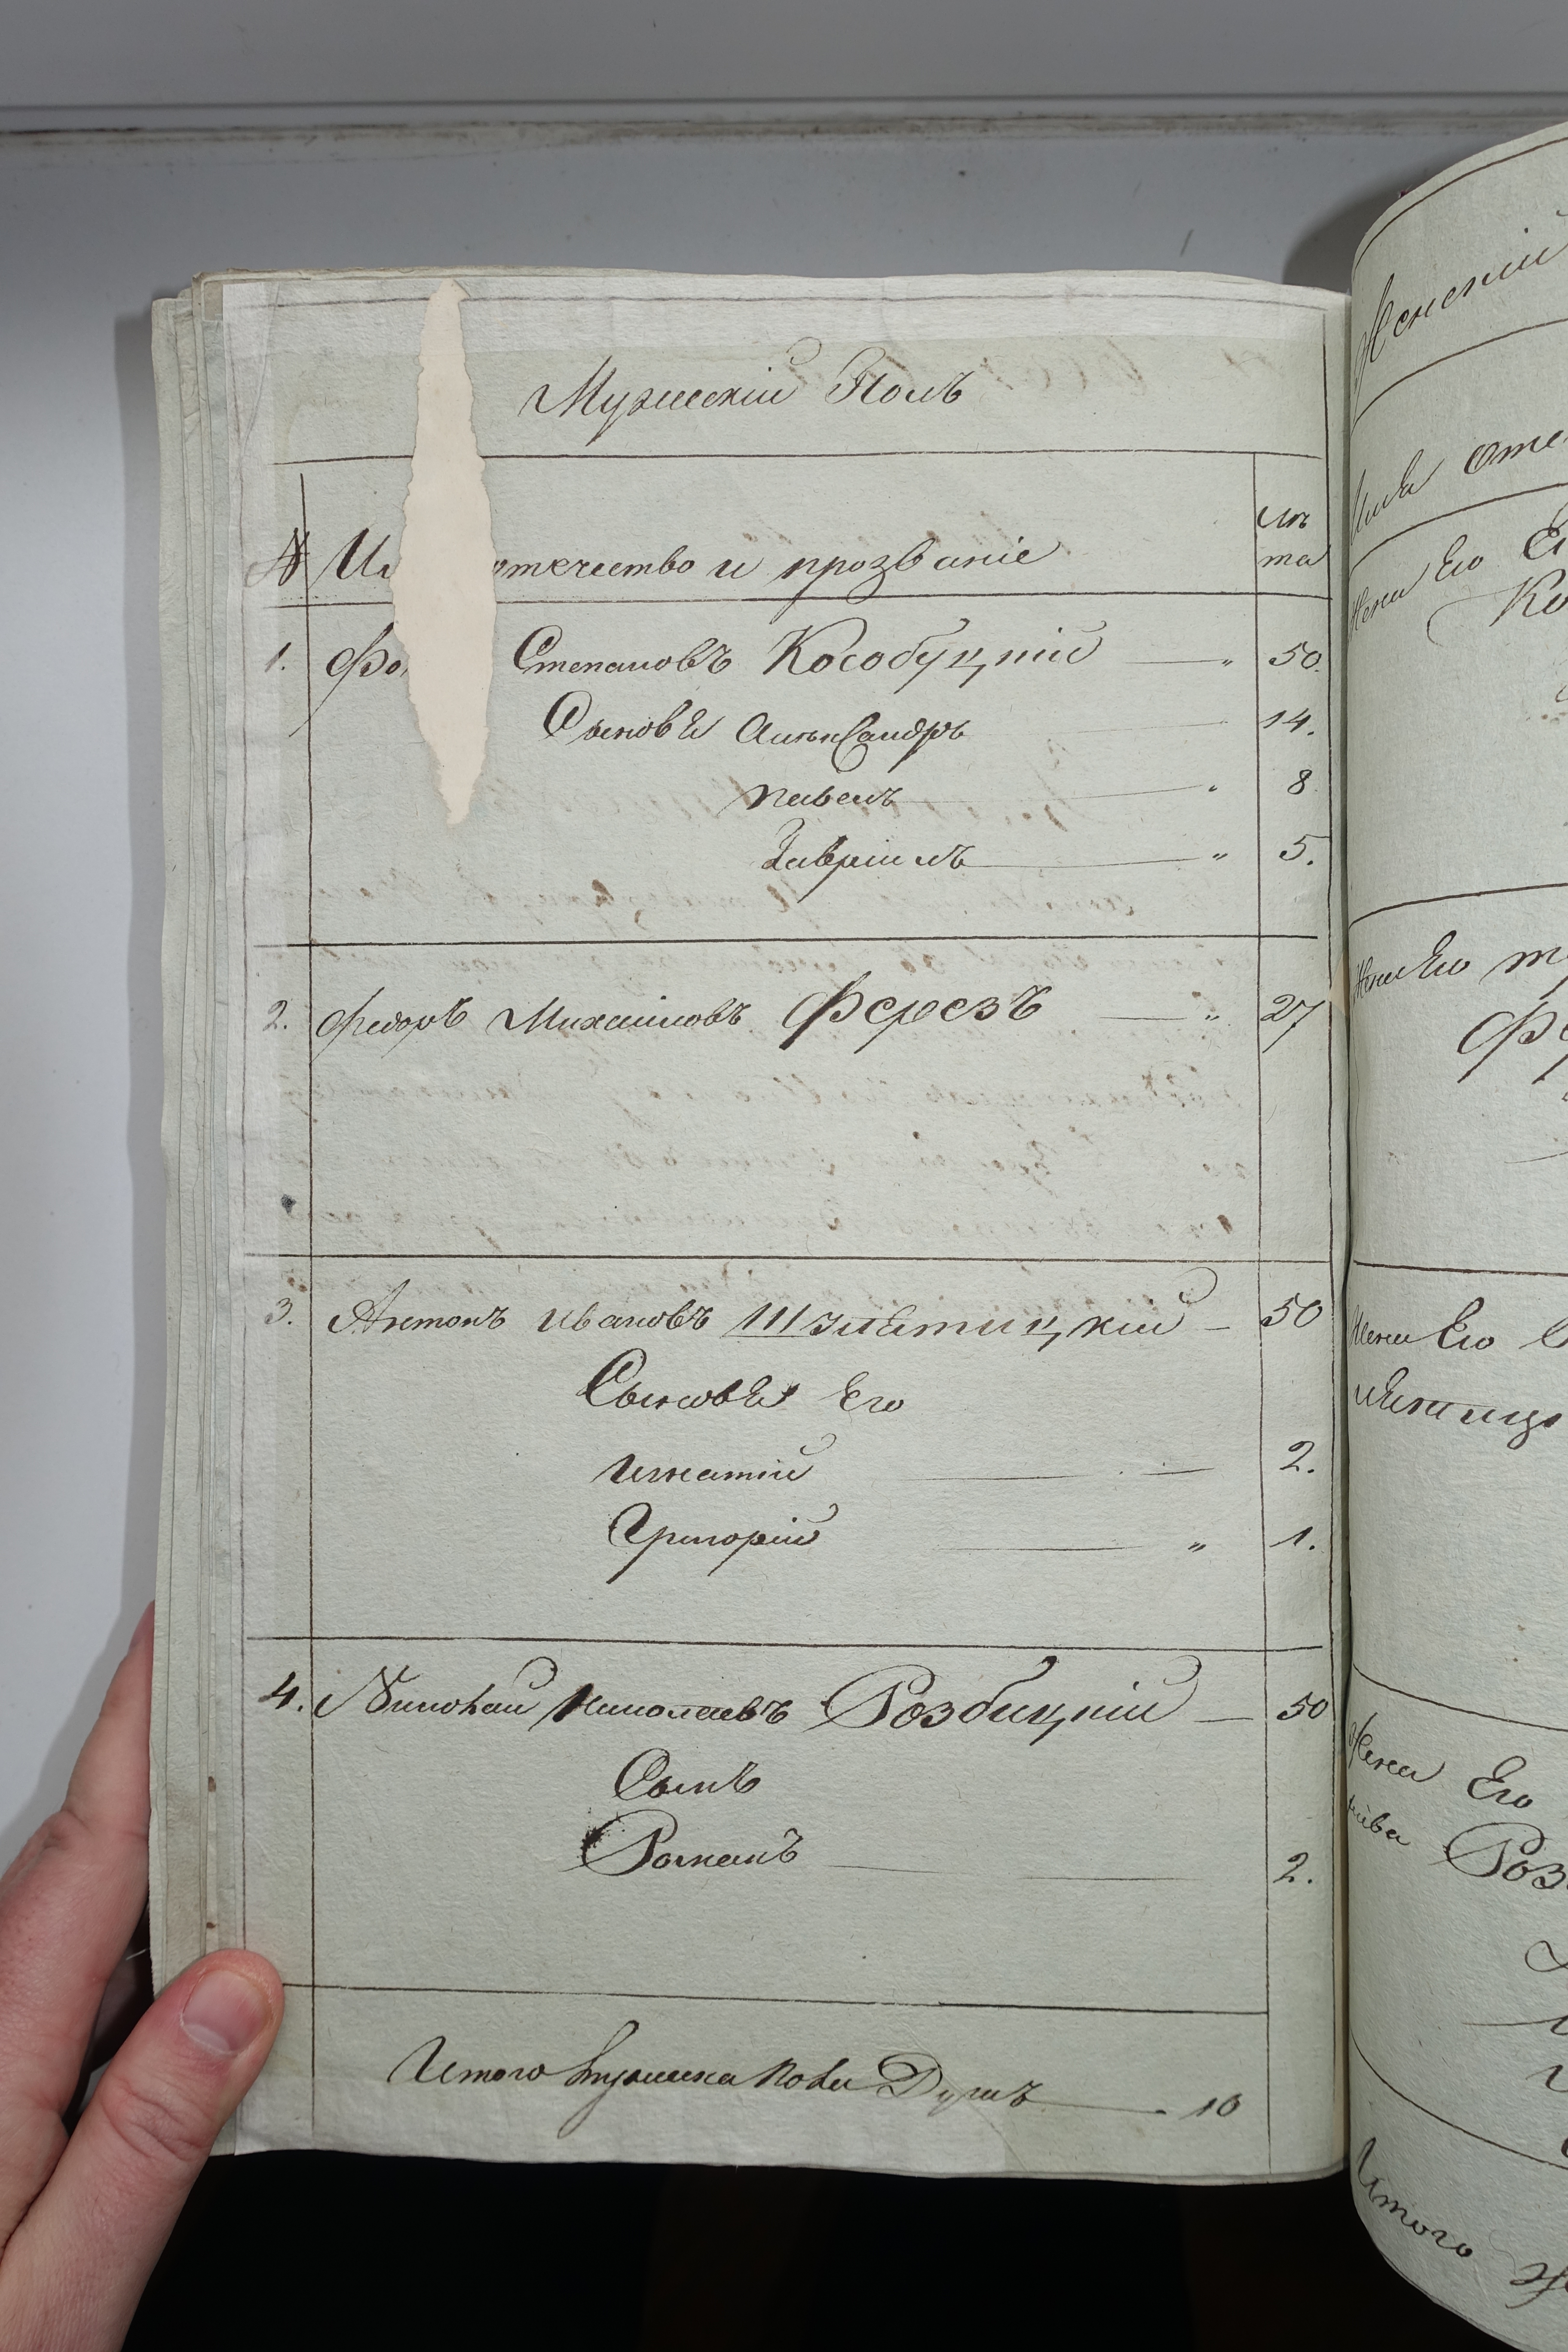 Мужескій Полъ
№ отчество и прозваніе лѣта
1. Степановъ Кособуцкій 50.
Сыновья Александръ 14.
Павелъ 8
Гавріилъ 5.
2. Федоръ Михаиловъ Ферезъ 27
3. Антонъ Ивановъ 50
Сыновья Его
Игнатій 2.
Григорій 1.
4. Николай Николаевъ Розбицкій 50
Сынъ
Романъ 2.
Итого мужеска пола Душъ 10
Женскій
Жена Его
Жена Его
Фе
Жена Его
Жена Его
Роз
Итого